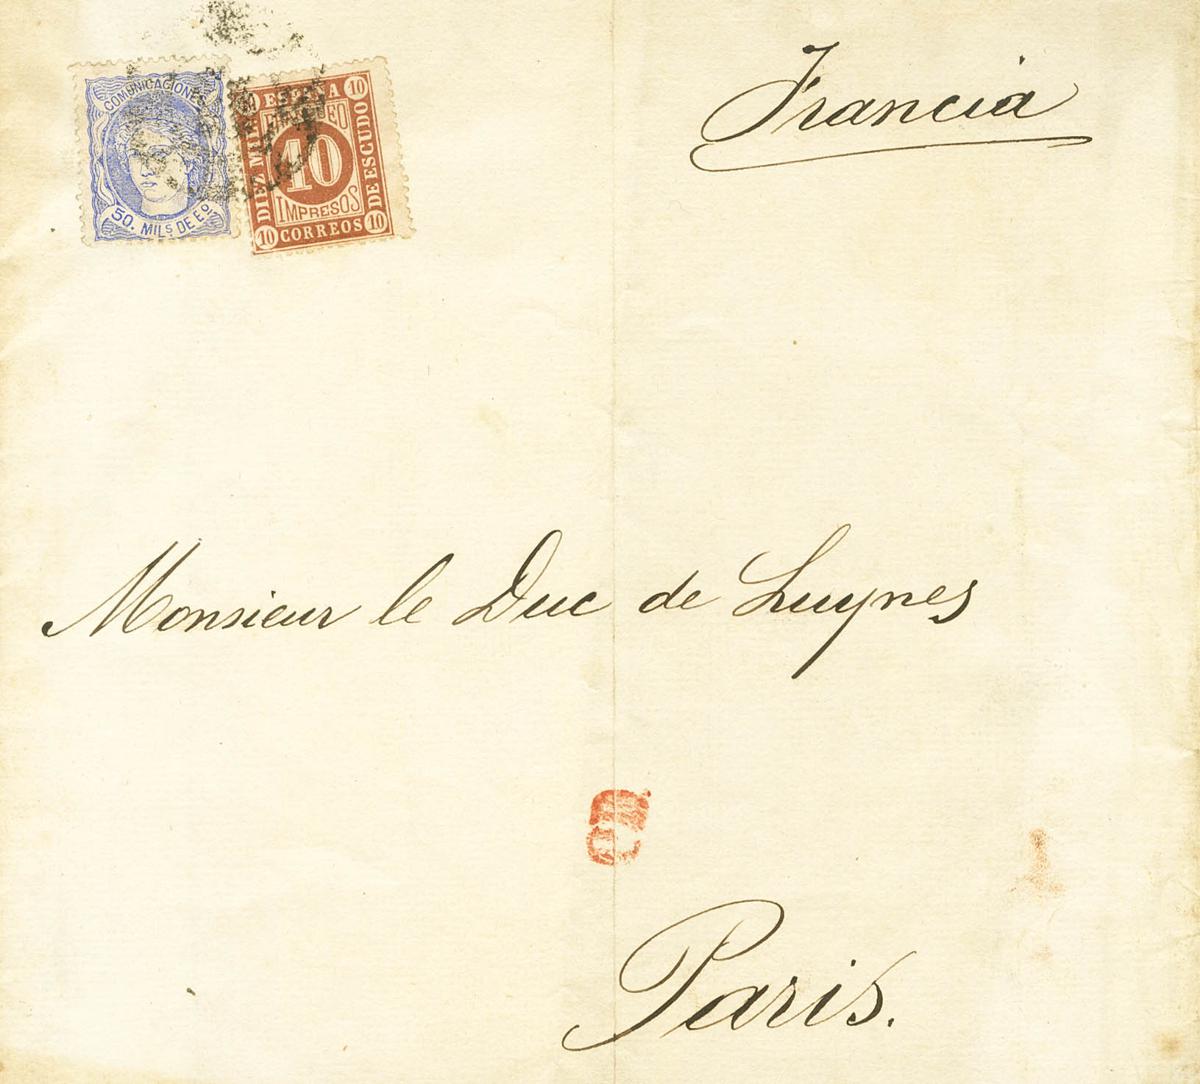 Francia
COMUNICACIONES
50. MILS DE Eº
ESPAÑA
DIEZ MILS
DE ESCUDO
10
10
IMPRESOS
10 CORREOS 10
Monsieur le Duc de Luynes
Paris.